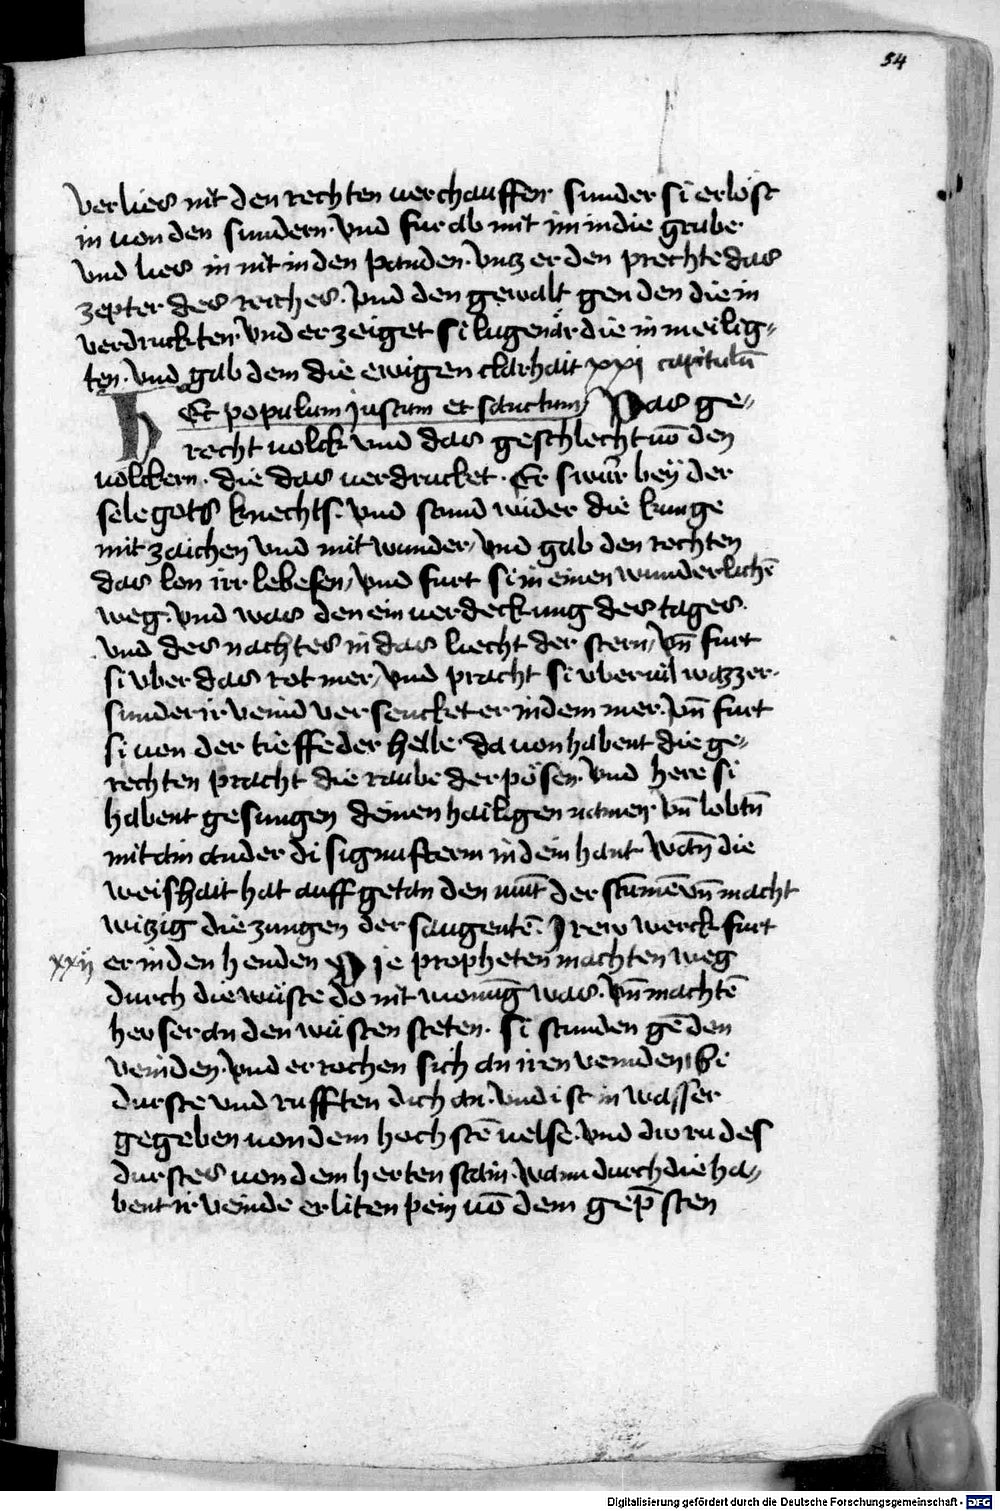 54
verlies nit den rechten verchauffen sunder si erlöst
in von den sundern. vnd fur ab mit im in die grube
vnd lies in nit in den panden. vntz er den prechte das
zepter des reiches. vnd den gewalt gen den die in
verdruckten vnd erzeiget si lugenär die in meilig-
ten. vnd gab dem die ewigen clarhait xxj capitulū
Hec populum justum et sanctum Das ge-
recht volck vnd das geschlecht vō den
völckern. die das verdrucket. Er swūr bey der
sele gots knechts. vnd stund wider die kunge
mit zaichen vnd mit wunder, vnd gab den rechten
das lon irr lebesen, vnd furt si in einen wunderlichē
weg. vnd was den ein verdeckung des tages.
vnd des nachtes in das liecht der stern, vn̄ furt
si vber das rot mer, vnd pracht si vber vil wazzer.
sunder ir veind versencket er in dem mer. vn̄ furt
si von der tieffe der helle da von habent die ge-
rechten pracht die raube der pösen. vnd here si
habent gesungen deinen hailigen namen vn̄ lobtn̄
mit ain ander di signufterin in dein hant Wan̄ die
weishait hat auff getan den mūt der stūmē vn̄ macht
witzig die zungen der saugentē. Irew werck furt
xxij er in den henden Die propheten machten weg
durch die wüste do nit wonūg was. vn̄ machtē
hevser an den wüsten steten. si stunden gē den
veinden. vnd errochen sich an iren veinden Se
durste vnd rufften dich an. vnd ist in wasser
gegeben von dem hochstē velse. vnd die ru des
durstes von dem herten stain. wann durch die ha-
bent ir veinde erliten pein vō dem gep̄sten
Digitalisierung gefördert durch die Deutsche Forschungsgemeinschaft - DFG